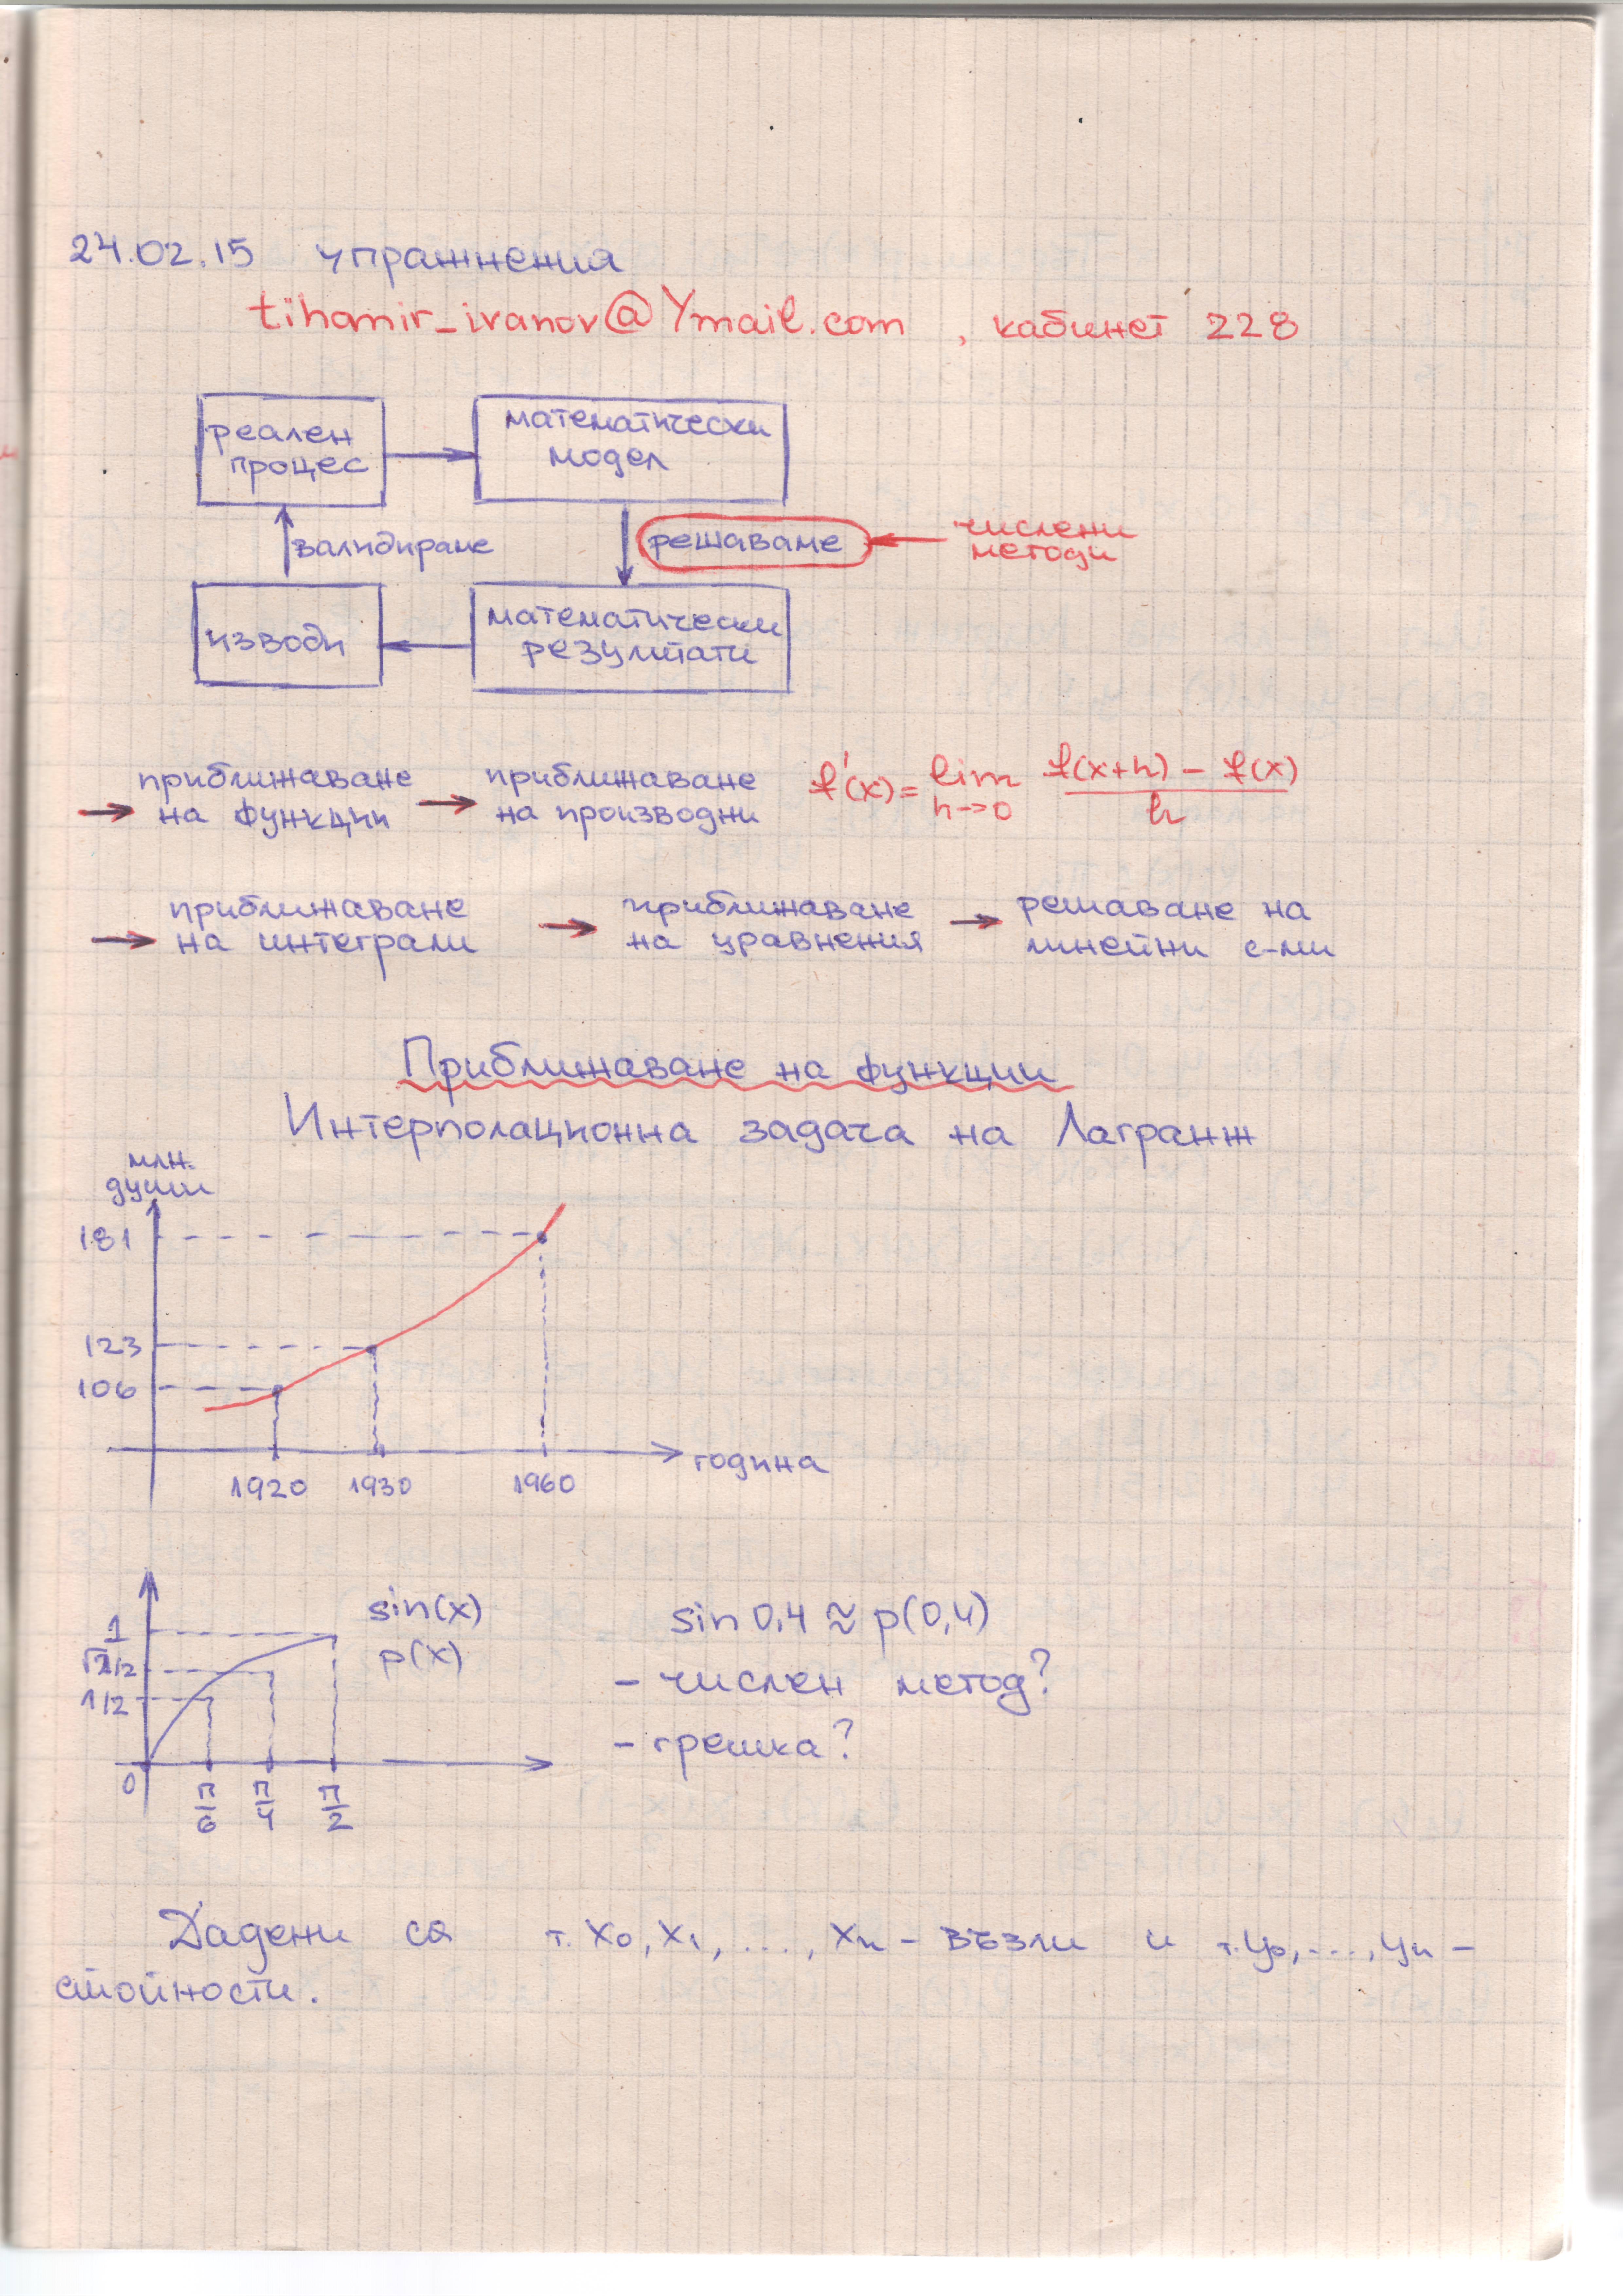 24.02.15 упражнения
tihomir_ivanov@Ymail.com , кабинет 228
реален
процес
математически
модел
валидиране
решаваме
числени
методи
изводи
математически
резултати
приближаване
на функции
приближаване
на производни
f'(x) = lim h→0 f(x+h) - f(x) / h
приближаване
на интеграли
приближаване
на уравнения
решаване на
линейни с-ми
Приближаване на функции
Интерполационна задача на Лагранж
млн.
души
181
123
106
1920 1930 1960
година
1
√2/2
1/2
0
π/6 π/4 π/2
sin(x)
p(x)
sin 0,4 ≈ p(0,4)
- числен метод?
- грешка?
Дадени са т. x₀, x₁, ..., xₙ - възли и т. y₀, ..., yₙ -
стойности.